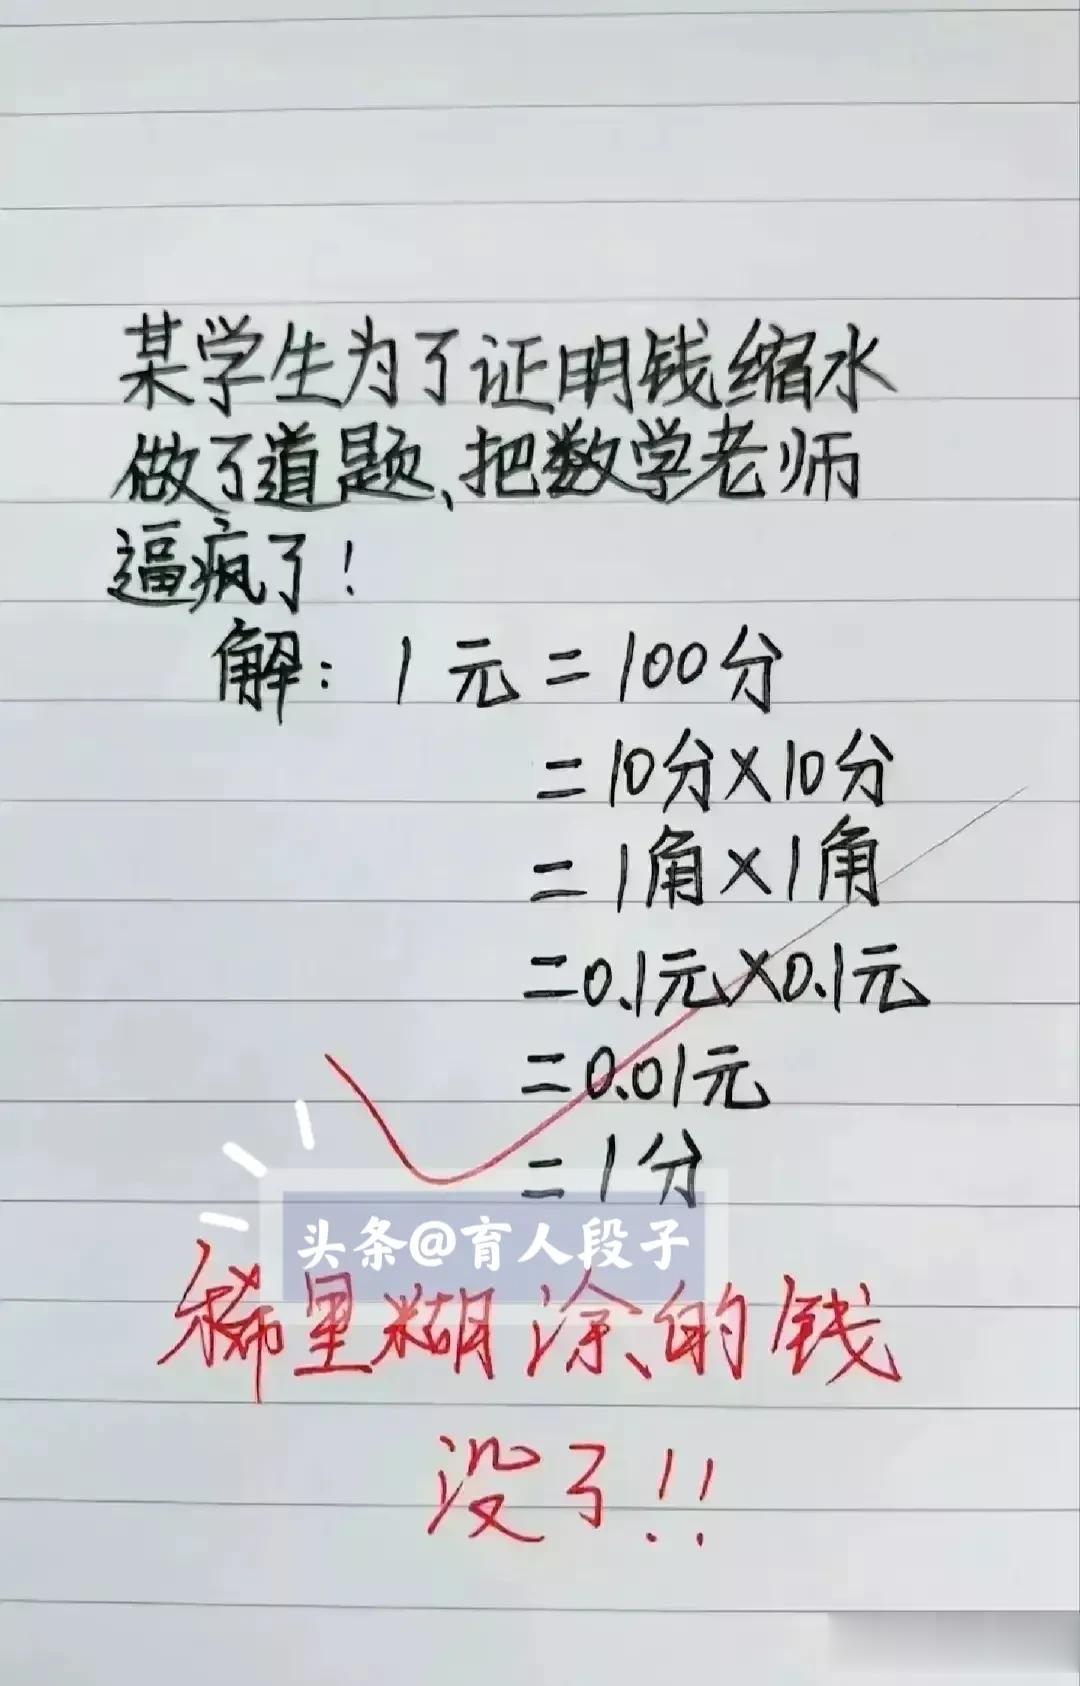 某学生为了证明钱缩水
做了道题、把数学老师
逼疯了！
解：1元=100分
=10分×10分
=1角×1角
=0.1元×0.1元
=0.01元
=1分
头条@育人段子
稀里糊涂的钱
没了!!